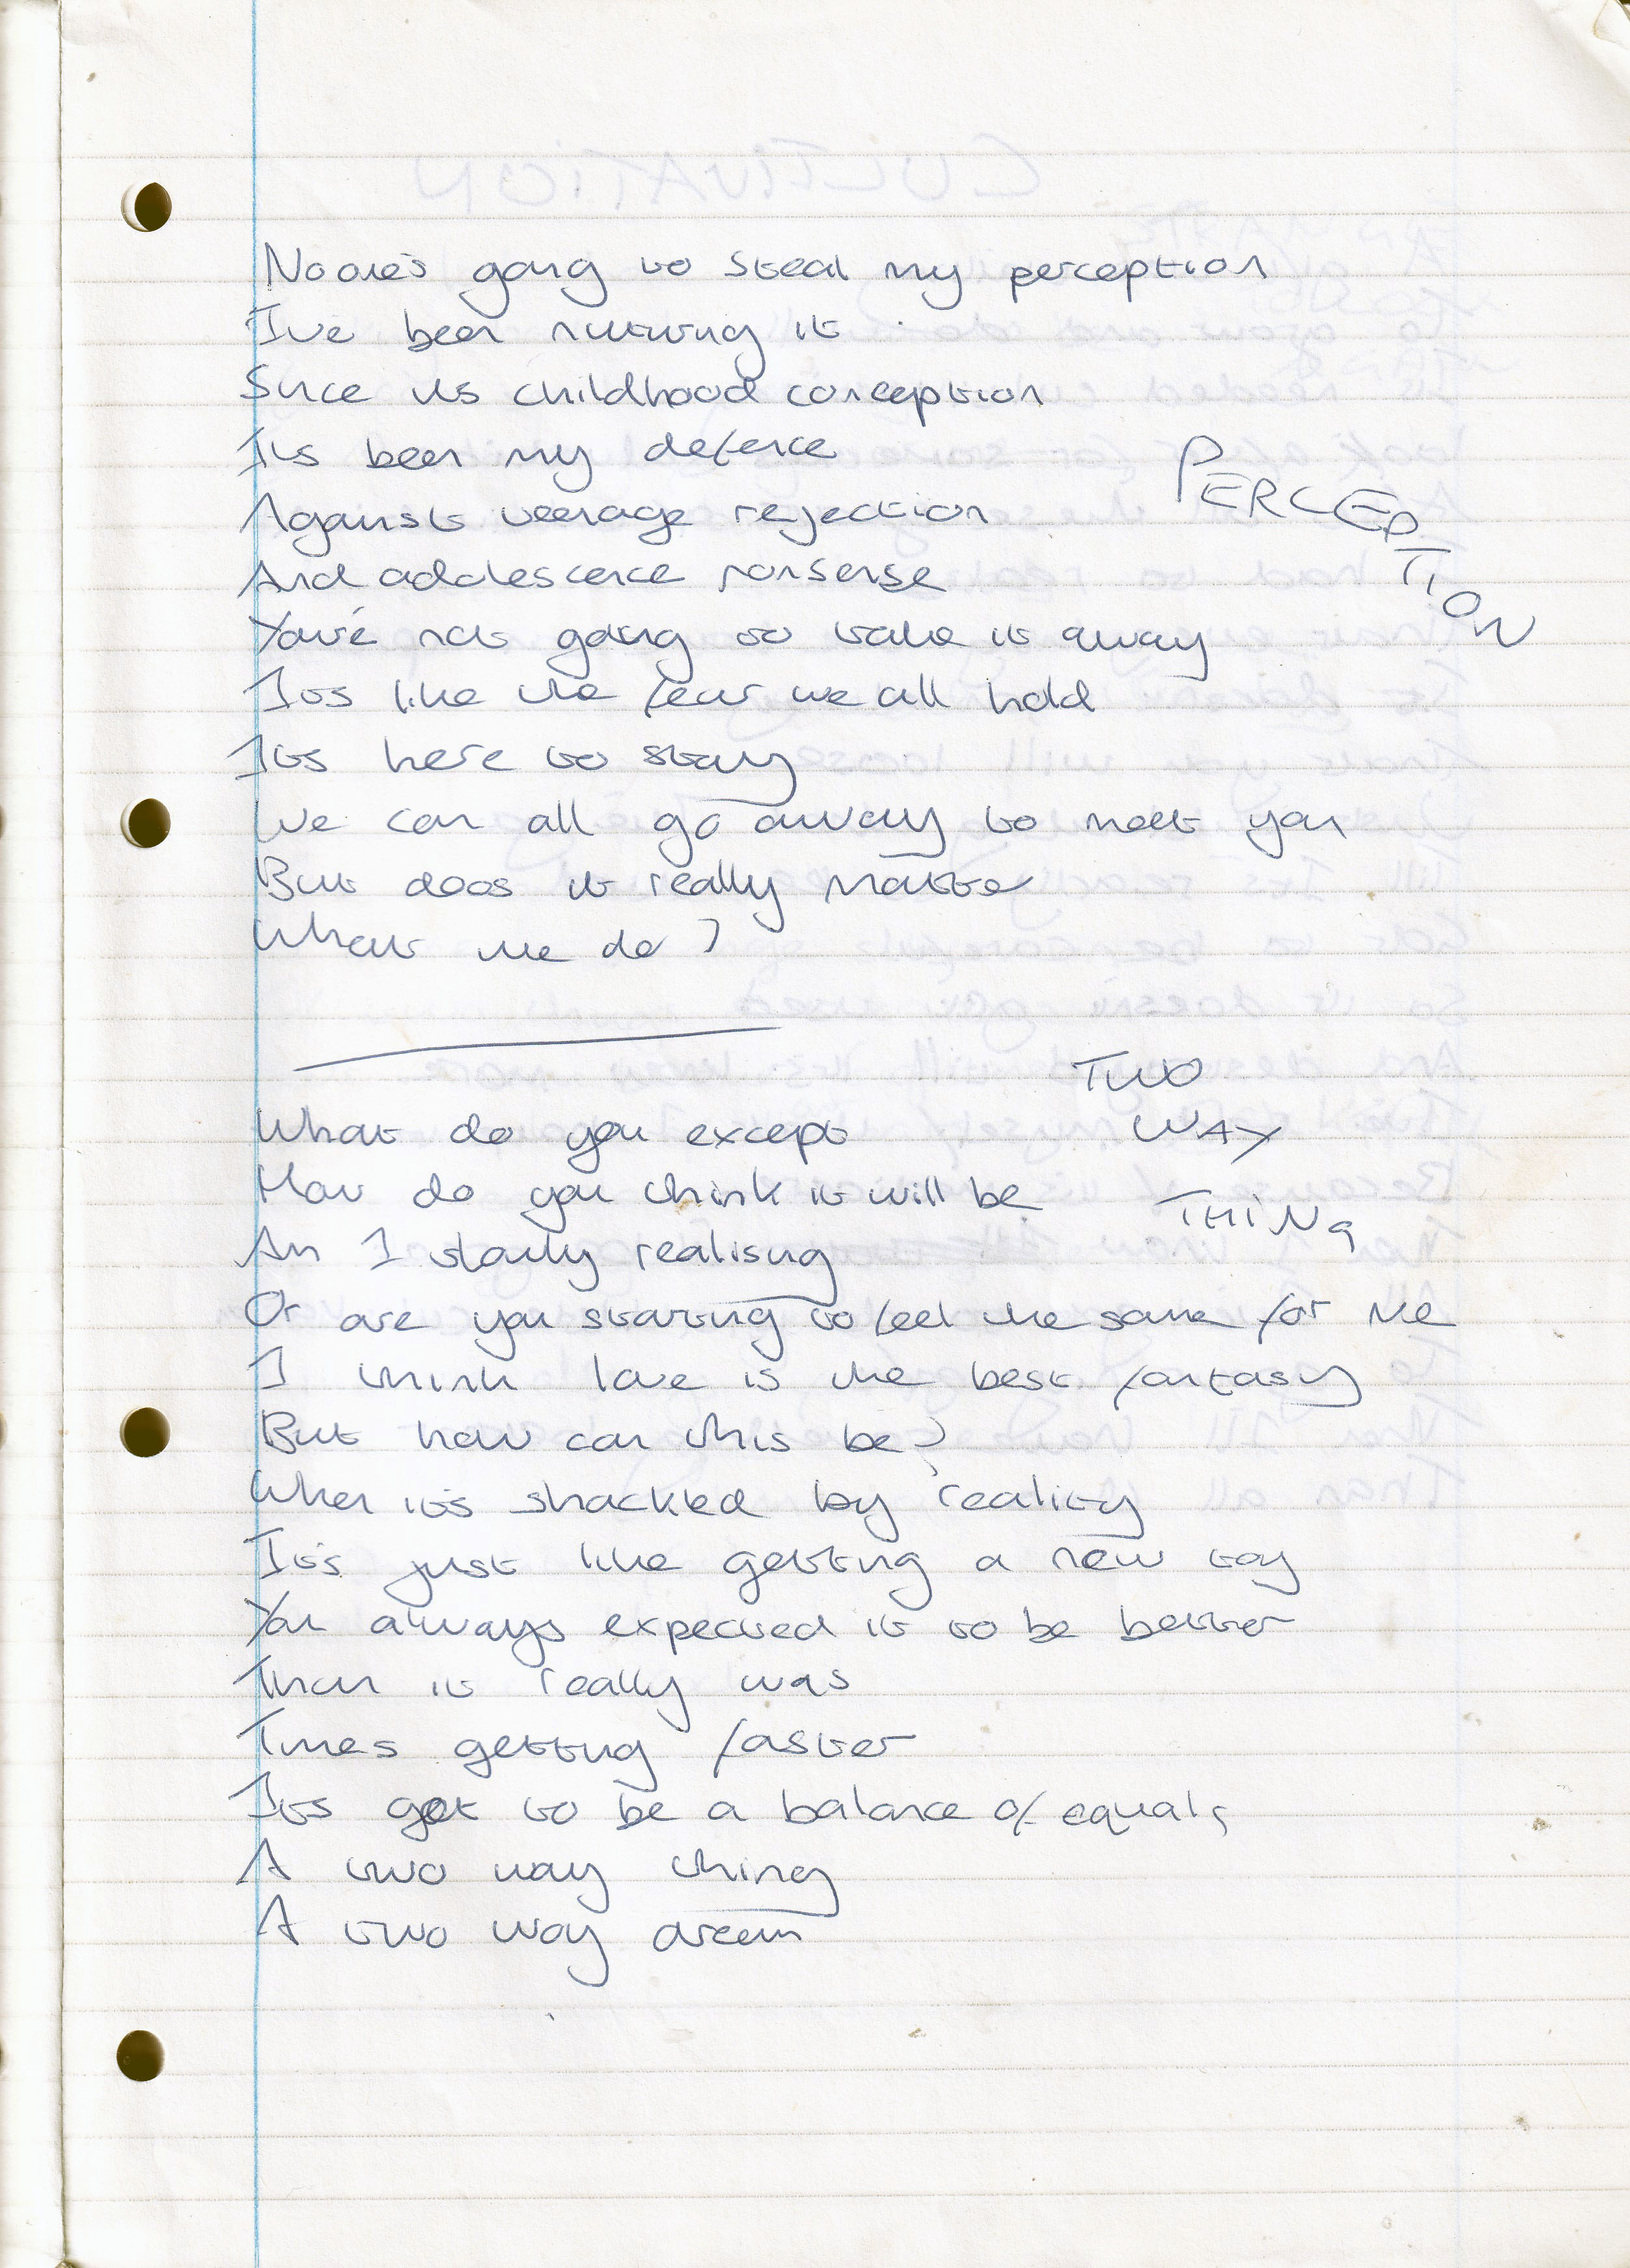 No one's going to steal my perception
I've been nurturing it
Since its childhood conception
Its been my defence
Against teenage rejection
And adolescence nonsense
PERCEPTION
You're not going to take it away
Its like the fear we all hold
Its here to stay
We can all go away to meet you
But does it really matter
What we do?
TWO
WAY
THING
What do you except
How do you think it will be
Am I slowly realising
Or are you starting to feel the same for me
I think love is the best fantasy
But how can this be?
When it's shackled by reality
It's just like getting a new toy
You always expected it to be better
Than it really was
Times getting faster
Its got to be a balance of equals
A two way thing
A two way dream